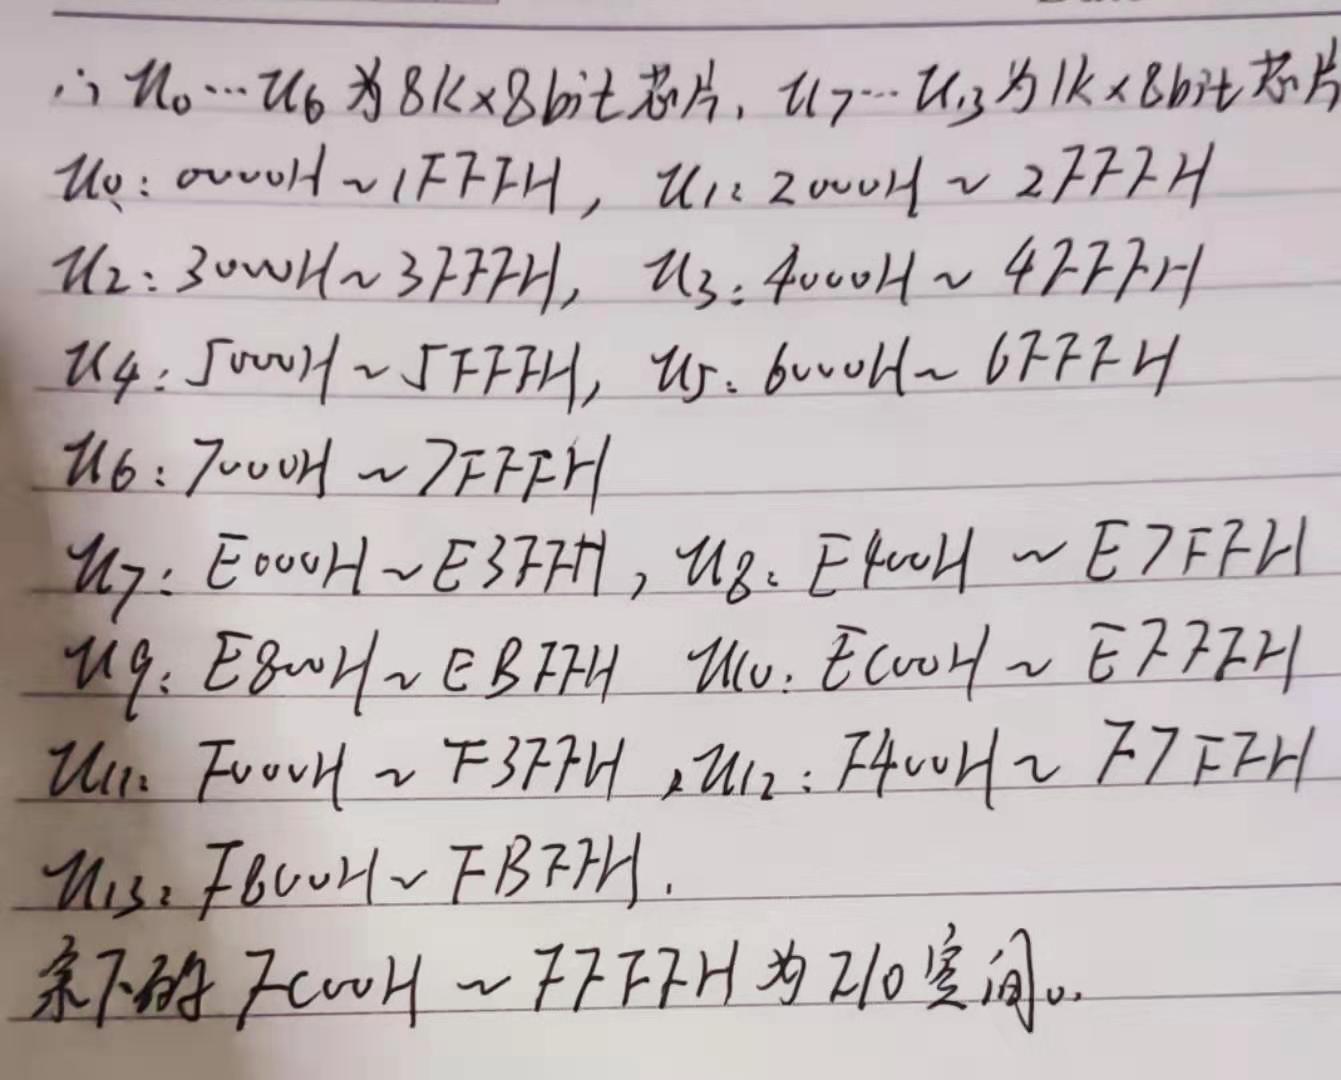 ∴ U0…U6为8K×8bit芯片，U7…U13为1K×8bit芯片
U0: 0000H~1FFFH, U1: 2000H~2FFFH
U2: 3000H~3FFFH, U3: 4000H~4FFFH
U4: 5000H~5FFFH, U5: 6000H~6FFFH
U6: 7000H~7FFFH
U7: E000H~E3FFH, U8: E400H~E7FFH
U9: E800H~EBFFH U10: EC00H~EFFFH
U11: F000H~F3FFH, U12: F400H~F7FFH
U13: F800H~FBFFH.
余下的FC00H~FFFFH为I/O空间。